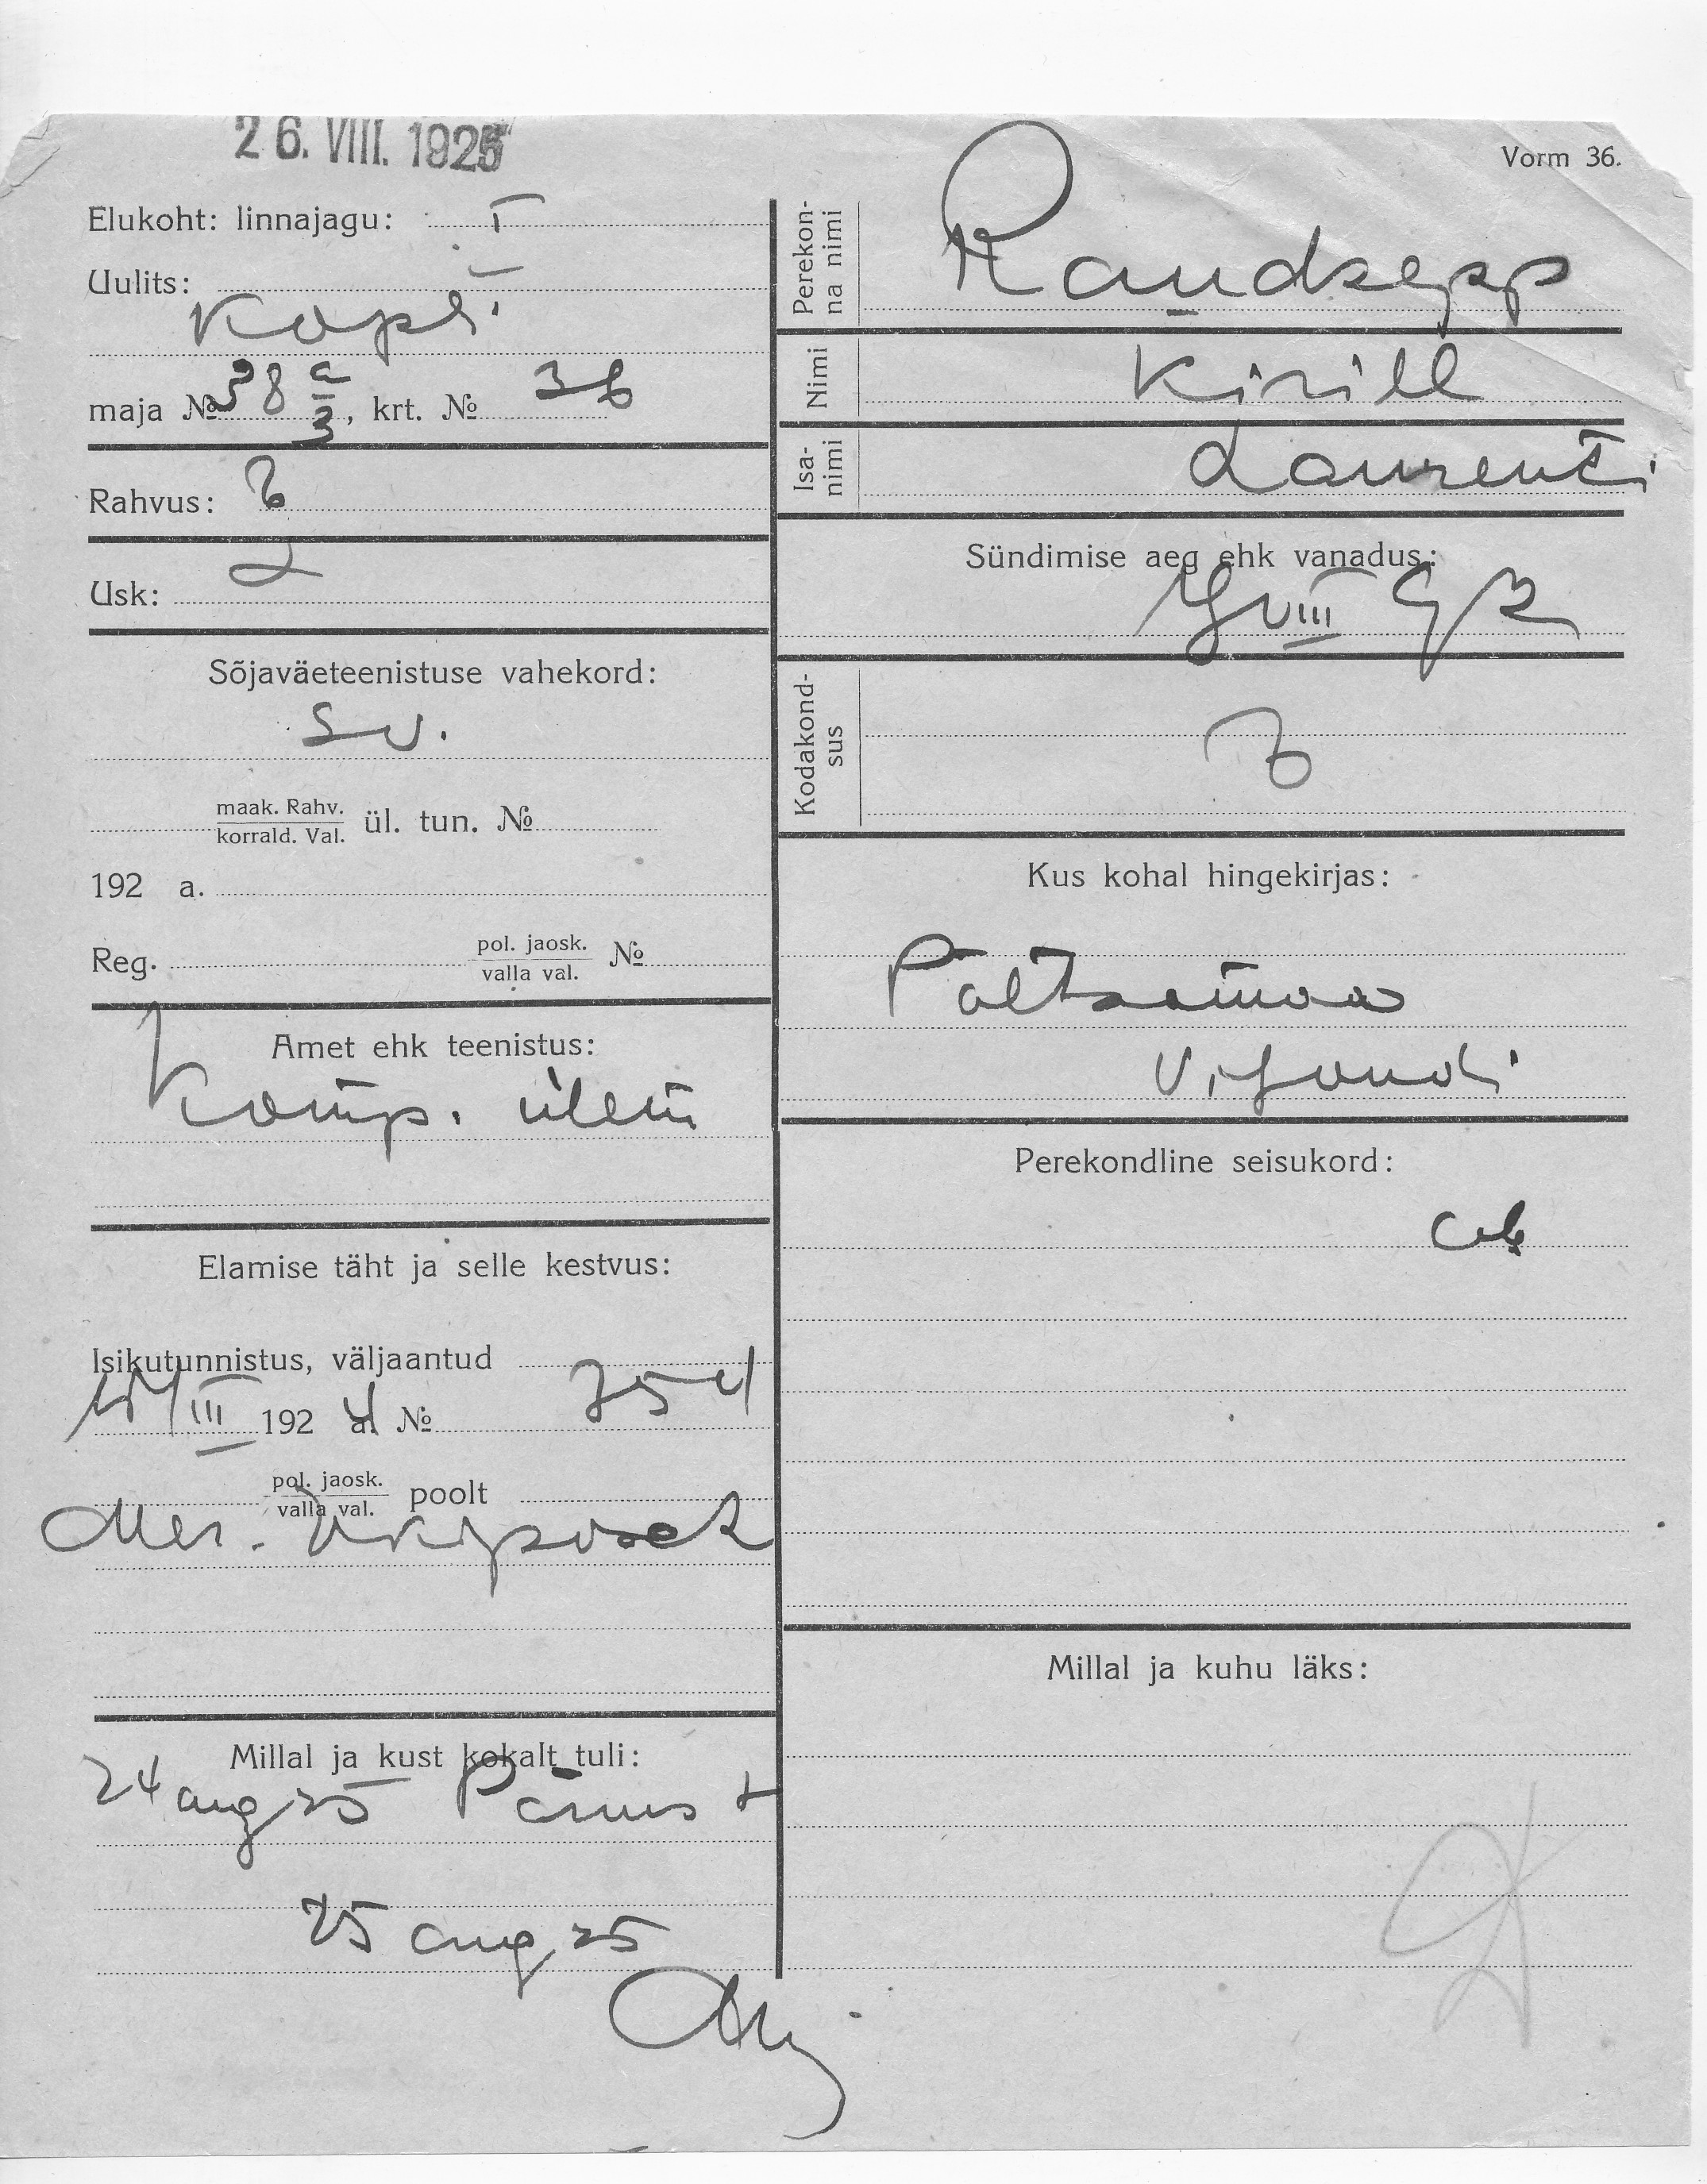 26. VIII. 1925
Vorm 36.
Elukoht: linnajagu: I
Uulits:
Kopli
maja № 38 a/3, krt. № 36
Rahvus: E
Usk: L
Sõjaväeteenistuse vahekord:
sv.
maak. Rahv.
korrald. Val. ül. tun. №
192 a.
Reg. pol. jaosk.
valla val. №
Amet ehk teenistus:
Komp. ülem
Elamise täht ja selle kestvus:
Isikutunnistus, väljaantud
III 1924 a. № 754
pol. jaosk.
valla val. poolt
Millal ja kust kohalt tuli:
24 aug 25 Pärnust
25 aug 25
Perekonna nimi Raudsepp
Nimi Kirill
Isanimi Laurenti
Sündimise aeg ehk vanadus:
VIII
Kodakondsus E
Kus kohal hingekirjas:
Põltsamaa
Viljandi
Perekondline seisukord:
Millal ja kuhu läks: